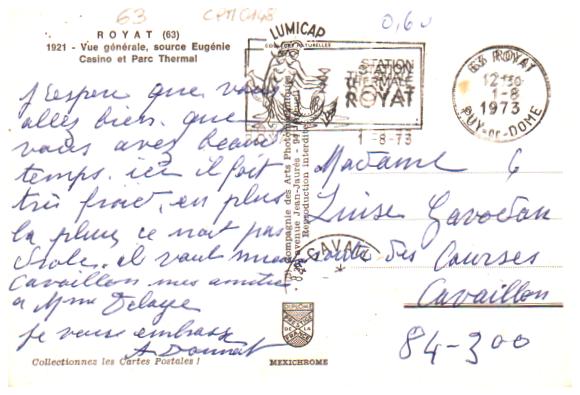 63
CPM C148
0,60
ROYAT (63)
1921 - Vue générale, source Eugénie
Casino et Parc Thermal
LUMICAP
COULEURS NATURELLES
STATION
THERMALE
ROYAT
63 ROYAT
12H30
1-8
1973
PUY-DE-DOME
1-8-73
J'espère que vous
allez bien. que
vous avez beau
temps. ici il fait
très froid, en plus
la pluie, ce n'ait pas
drôle. il vaut mieux
Cavaillon mes amitiés
a Mme Delaye
je vous embrasse
A Donnat
Compagnie des Arts Photomécaniques
avenue Jean-Jaurès - 94
Reproduction interdite
Madame
Luise
route des Courses
Cavaillon
84-300
CAVAI
Collectionnez les Cartes Postales !
MEXICHROME